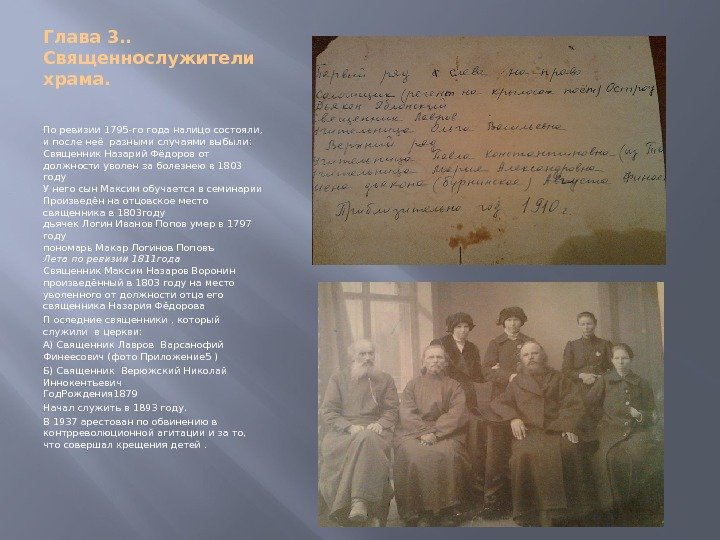 Глава 3..
Священнослужители
храма.
По ревизии 1795-го года налицо состояли,
и после неё разными случаями выбыли:
Священник Назарий Фёдоров от
должности уволен за болезнею в 1803
году
У него сын Максим обучается в семинарии
Произведён на отцовское место
священника в 1803году
дьячек Логин Иванов Попов умер в 1797
году
пономарь Макар Логинов Поповъ
Лета по ревизии 1811года
Священник Максим Назаров Воронин
произведённый в 1803 году на место
уволенного от должности отца его
священника Назария Фёдорова
П оследние священники , который
служили в церкви:
А) Священник Лавров Варсанофий
Финеесович (фото Приложение5 )
Б) Священник Верюжский Николай
Иннокентьевич
Год.Рождения1879
Начал служить в 1893 году.
В 1937 арестован по обвинению в
контрреволюционной агитации и за то,
что совершал крещения детей .
Первый ряд с слева на право
(регент на крылосах поёт) Остроу
Дьякон Яблонский
священник Лавров
учительница Ольга Васильевна
Верхний ряд
учительница Павла Константиновна (из
учительница Мария Александровна
жена дьякона Августа Финее
Приблизительно год 1910 г.